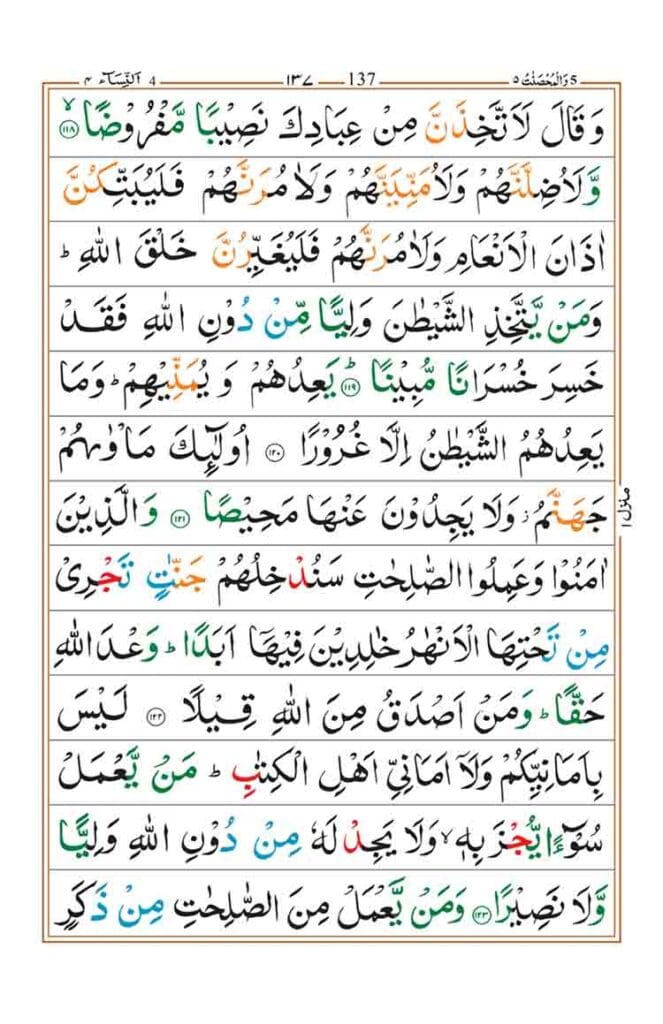 5 وَالْمُحْصَنٰتُ ٥ 137 ١٣٧ 4 اَلنِّسَآء ٤
وَ قَالَ لَاَتَّخِذَنَّ مِنْ عِبَادِكَ نَصِيْبًا مَّفْرُوْضًاۙ ﴿۱۱۸﴾
وَّلَاُضِلَّنَّهُمْ وَلَاُمَنِّيَنَّهُمْ وَلَاٰمُرَنَّهُمْ فَلَيُبَتِّكُنَّ
اٰذَانَ الْاَنْعَامِ وَلَاٰمُرَنَّهُمْ فَلَيُغَيِّرُنَّ خَلْقَ اللّٰهِ ؕ
وَمَنْ يَّتَّخِذِ الشَّيْطٰنَ وَلِيًّا مِّنْ دُوْنِ اللّٰهِ فَقَدْ
خَسِرَ خُسْرَانًا مُّبِيْنًا ؕ ﴿۱۱۹﴾ يَعِدُهُمْ وَ يُمَنِّيْهِمْ ؕ وَمَا
يَعِدُهُمُ الشَّيْطٰنُ اِلَّا غُرُوْرًا ﴿۱۲۰﴾ اُولٰٓئِكَ مَاْوٰىهُمْ
جَهَنَّمُ ؗ وَلَا يَجِدُوْنَ عَنْهَا مَحِيْصًا ﴿۱۲۱﴾ وَالَّذِيْنَ
اٰمَنُوْا وَعَمِلُوا الصّٰلِحٰتِ سَنُدْخِلُهُمْ جَنّٰتٍ تَجْرِىْ
مِنْ تَحْتِهَا الْاَنْهٰرُ خٰلِدِيْنَ فِيْهَاۤ اَبَدًا ؕ وَعْدَ اللّٰهِ
حَقًّا ؕ وَمَنْ اَصْدَقُ مِنَ اللّٰهِ قِيْلًا ﴿۱۲۲﴾ لَيْسَ
بِاَمَانِيِّكُمْ وَلَاۤ اَمَانِىِّ اَهْلِ الْكِتٰبِ ؕ مَنْ يَّعْمَلْ
سُوْٓءًا يُّجْزَ بِهٖ ۙ وَلَا يَجِدْ لَهٗ مِنْ دُوْنِ اللّٰهِ وَلِيًّا
وَّلَا نَصِيْرًا ﴿۱۲۳﴾ وَمَنْ يَّعْمَلْ مِنَ الصّٰلِحٰتِ مِنْ ذَكَرٍ
منزل ١